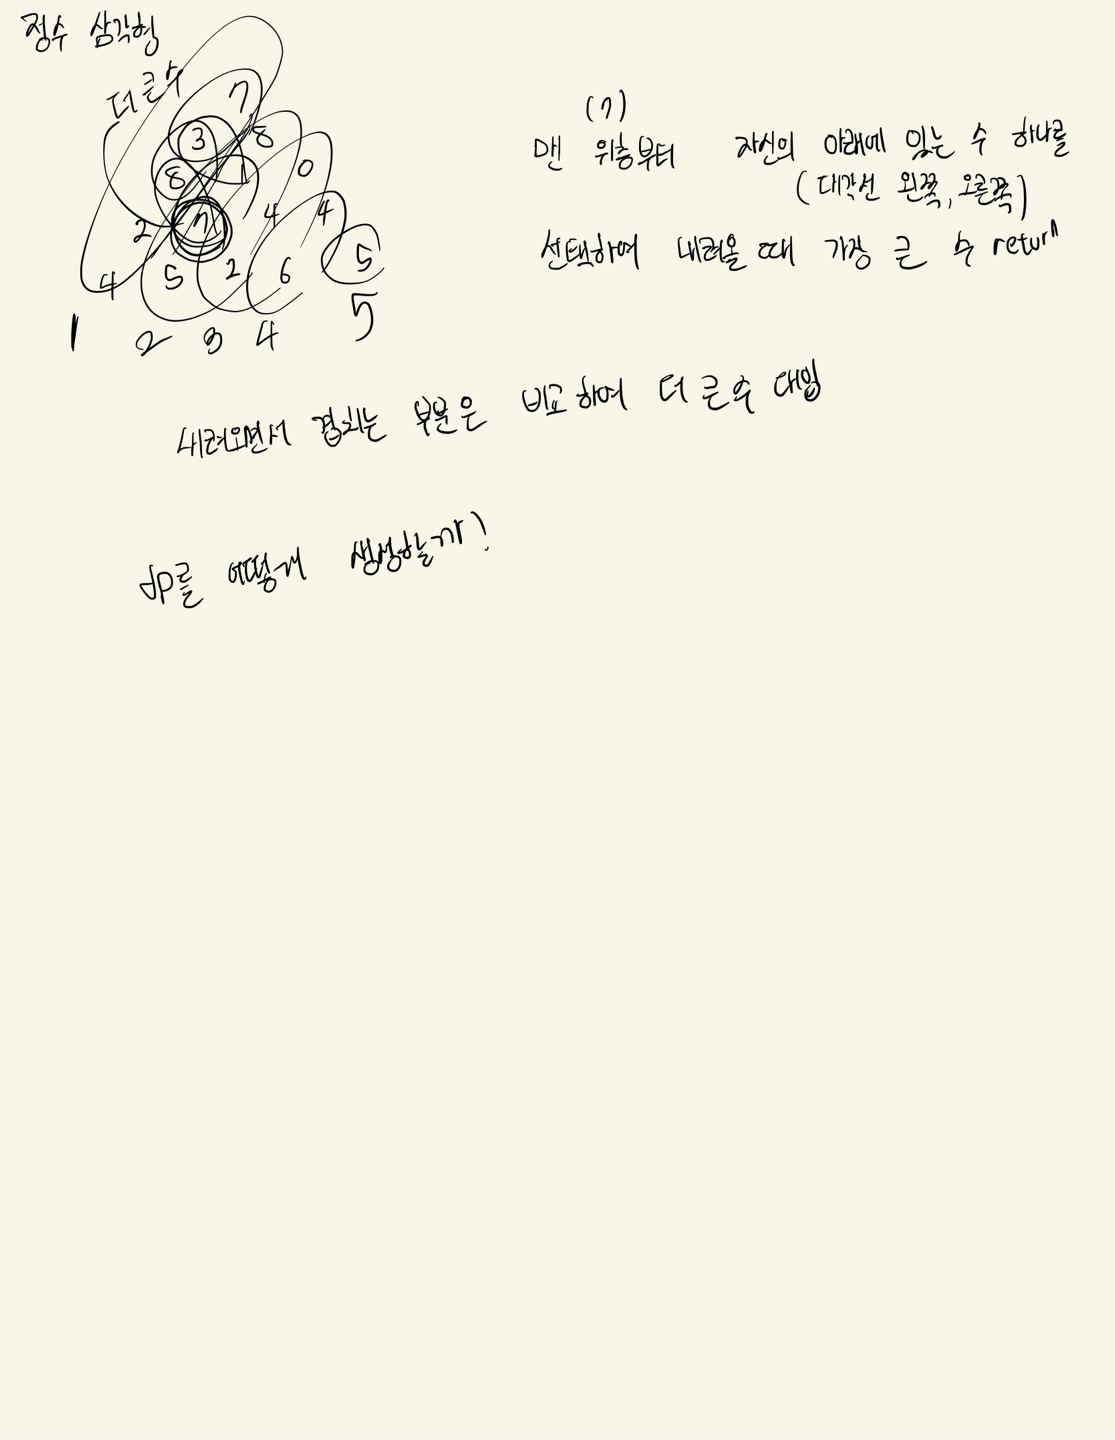 정수 삼각형
더 큰 수
7
3 8
8 1 0
2 7 4 4
4 5 2 6 5
1 2 3 4 5
(7)
맨 위층부터 자신의 아래에 있는 수 하나를
(대각선 왼쪽, 오른쪽)
선택하여 내려올 때 가장 큰 수 return
내려오면서 겹치는 부분은 비교하여 더 큰 수 대입
dp를 어떻게 생성할까?